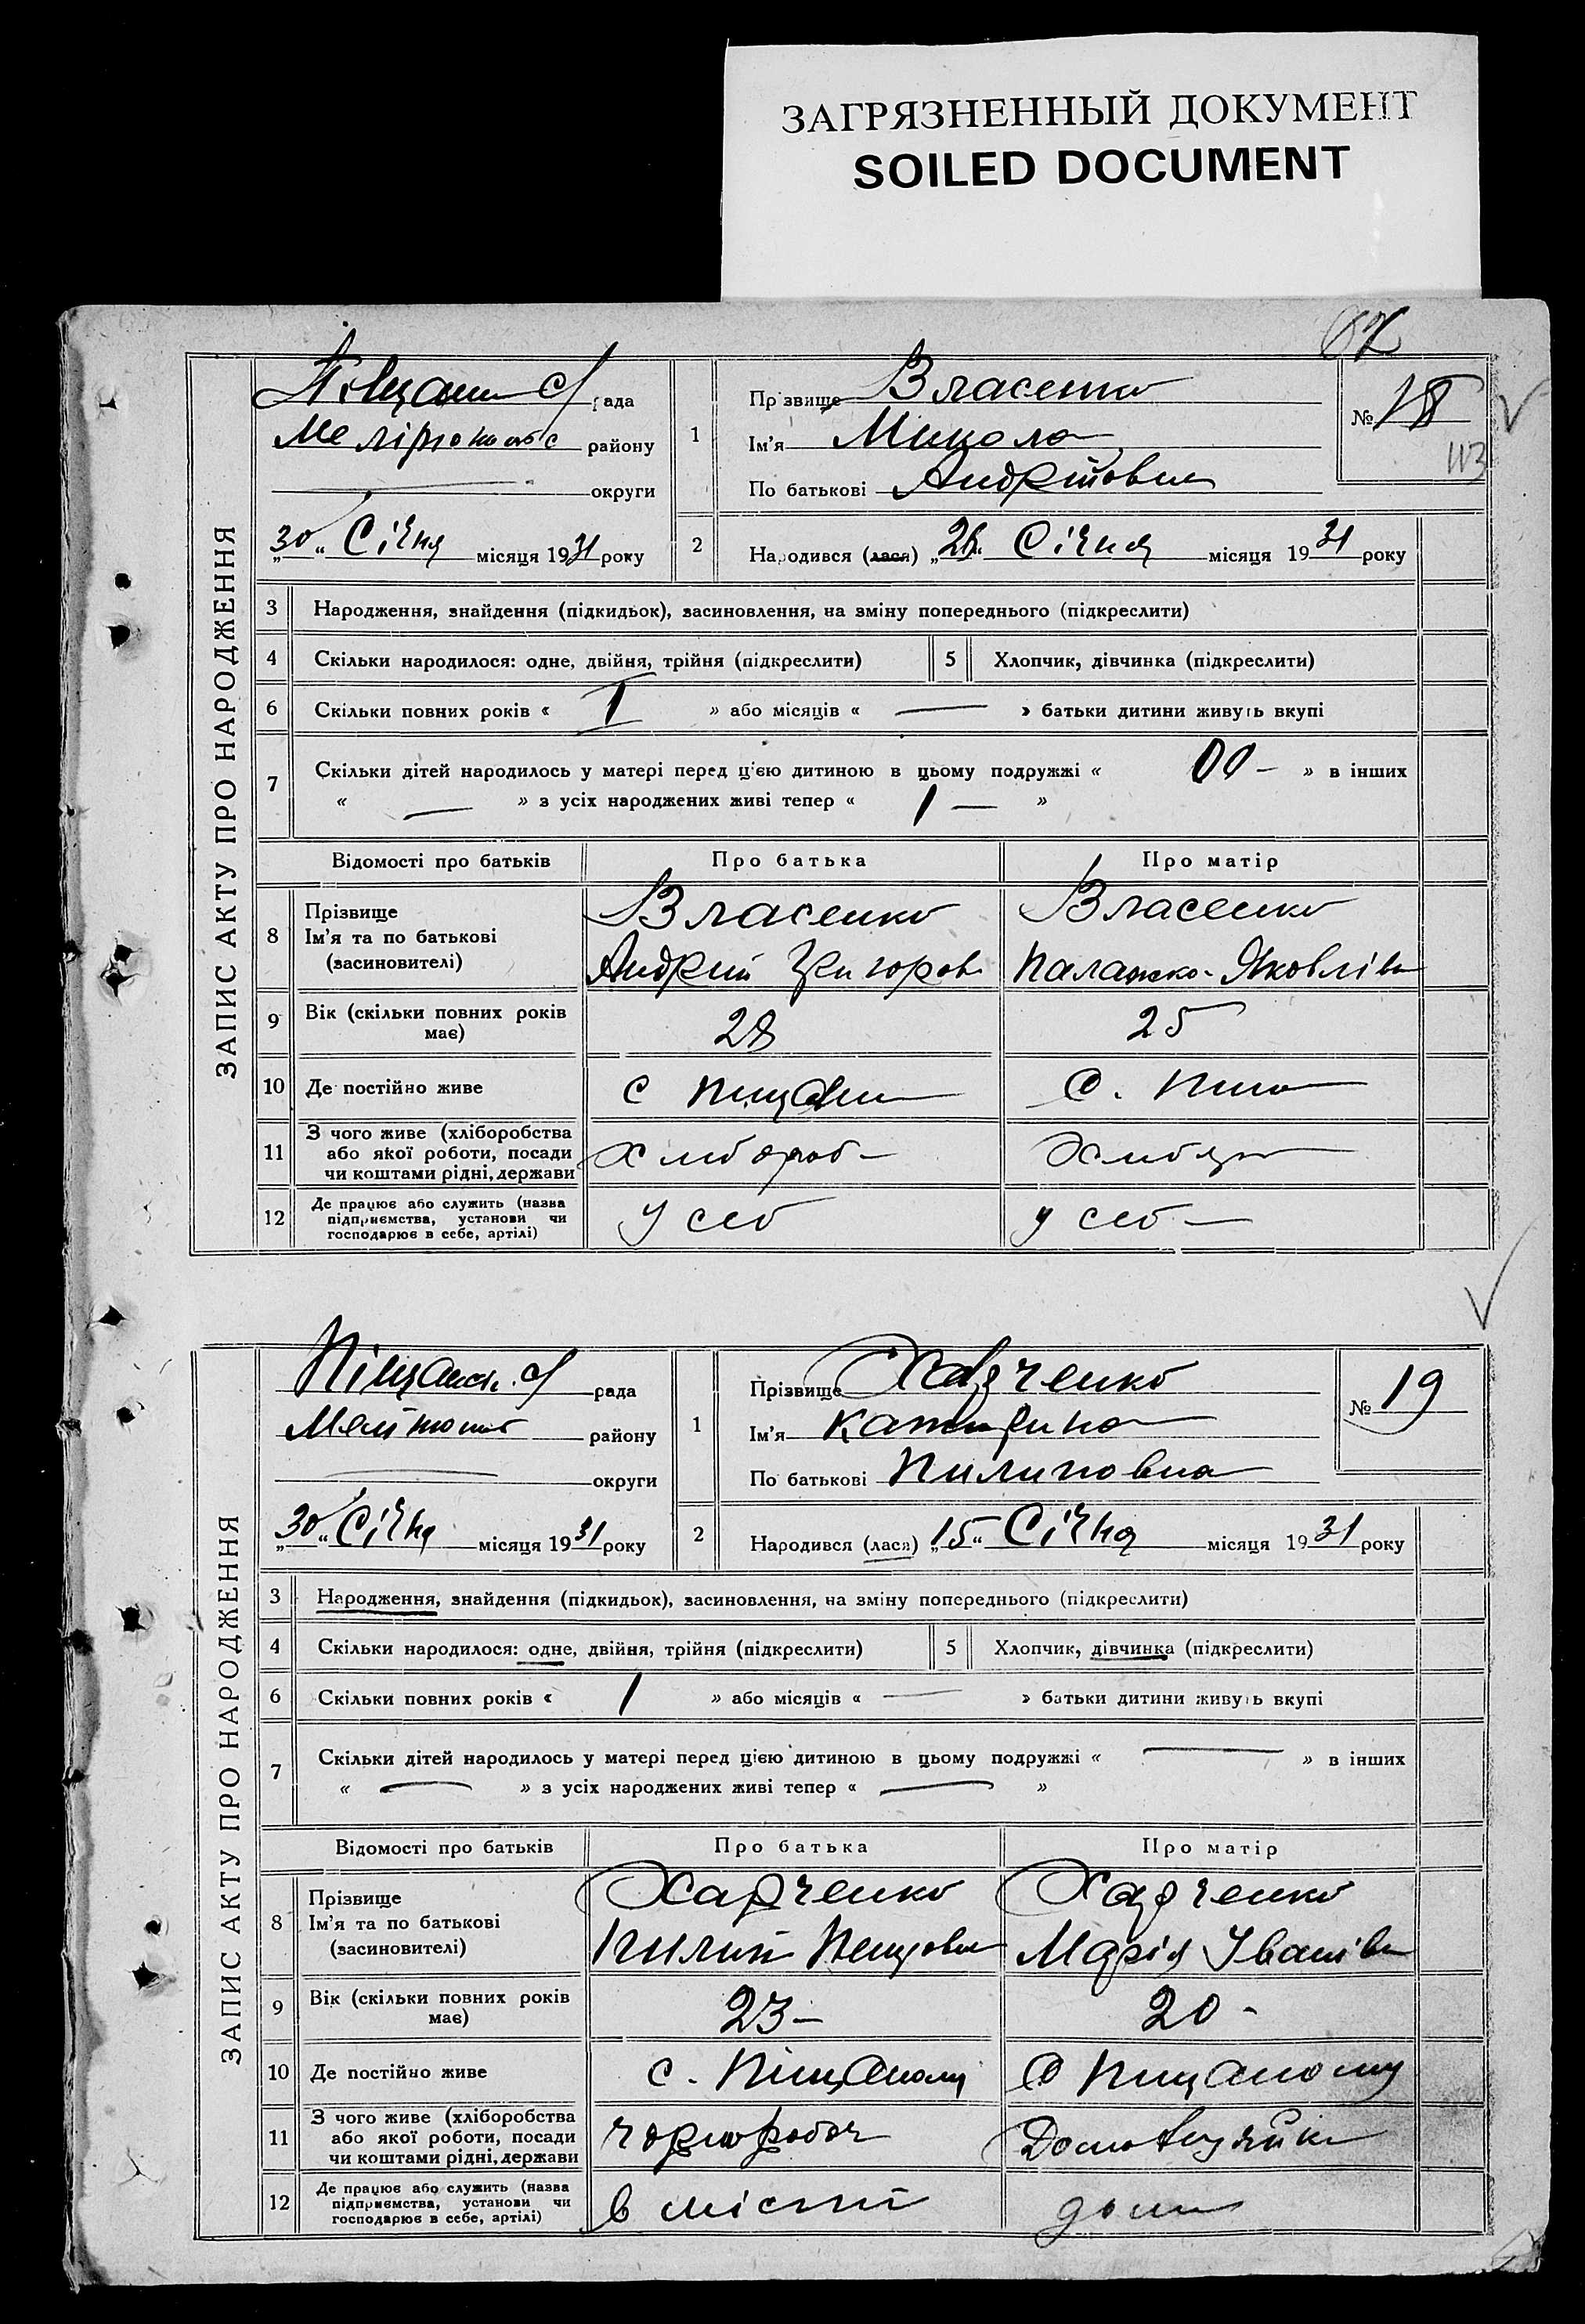 ЗАГРЯЗНЕННЫЙ ДОКУМЕНТ
SOILED DOCUMENT
ЗАПИС АКТУ ПРО НАРОДЖЕННЯ
рада
району
округи
„30“ Січня місяця 1931 року
1
Прізвище Власенко
Ім'я Микола
По батькові Андрійович
№ 18
113
2
Народився (лася) „26“ Січня місяця 1931 року
3 Народження, знайдення (підкидьок), засиновлення, на зміну попереднього (підкреслити)
4 Скільки народилося: одне, двійня, трійня (підкреслити)
5 Хлопчик, дівчинка (підкреслити)
6 Скільки повних років « 1 » або місяців « — » батьки дитини живуть вкупі
7 Скільки дітей народилось у матері перед цією дитиною в цьому подружжі « 00 — » в інших
« — » з усіх народжених живі тепер « 1 — »
Відомості про батьків Про батька Про матір
8 Прізвище Ім'я та по батькові (засиновителі)
Власенко Власенко
Андрій Григоров Палажка Яковлівн
9 Вік (скільки повних років має) 28 25
10 Де постійно живе с Пищани с.
11 З чого живе (хліборобства або якої роботи, посади чи коштами рідні, держави
хлібороб
12 Де працює або служить (назва підприємства, установи чи господарює в себе, артілі)
у себ у себ —
ЗАПИС АКТУ ПРО НАРОДЖЕННЯ
Піщанск. рада
району
округи
„30“ Січня місяця 1931 року
1
Прізвище Харченко
Ім'я Катерина
По батькові Пилиповна
№ 19
2
Народився (лася) „15“ Січня місяця 1931 року
3 Народження, знайдення (підкидьок), засиновлення, на зміну попереднього (підкреслити)
4 Скільки народилося: одне, двійня, трійня (підкреслити)
5 Хлопчик, дівчинка (підкреслити)
6 Скільки повних років « 1 » або місяців « — » батьки дитини живуть вкупі
7 Скільки дітей народилось у матері перед цією дитиною в цьому подружжі « — » в інших
« — » з усіх народжених живі тепер « — »
Відомості про батьків Про батька Про матір
8 Прізвище Ім'я та по батькові (засиновителі)
Харченко Харченко
Пилип Марія Іванівн
9 Вік (скільки повних років має) 23 — 20 -
10 Де постійно живе с. Піщаному с Пищаному
11 З чого живе (хліборобства або якої роботи, посади чи коштами рідні, держави
чорнороботч Домохазяйка
12 Де працює або служить (назва підприємства, установи чи господарює в себе, артілі)
в місті дома